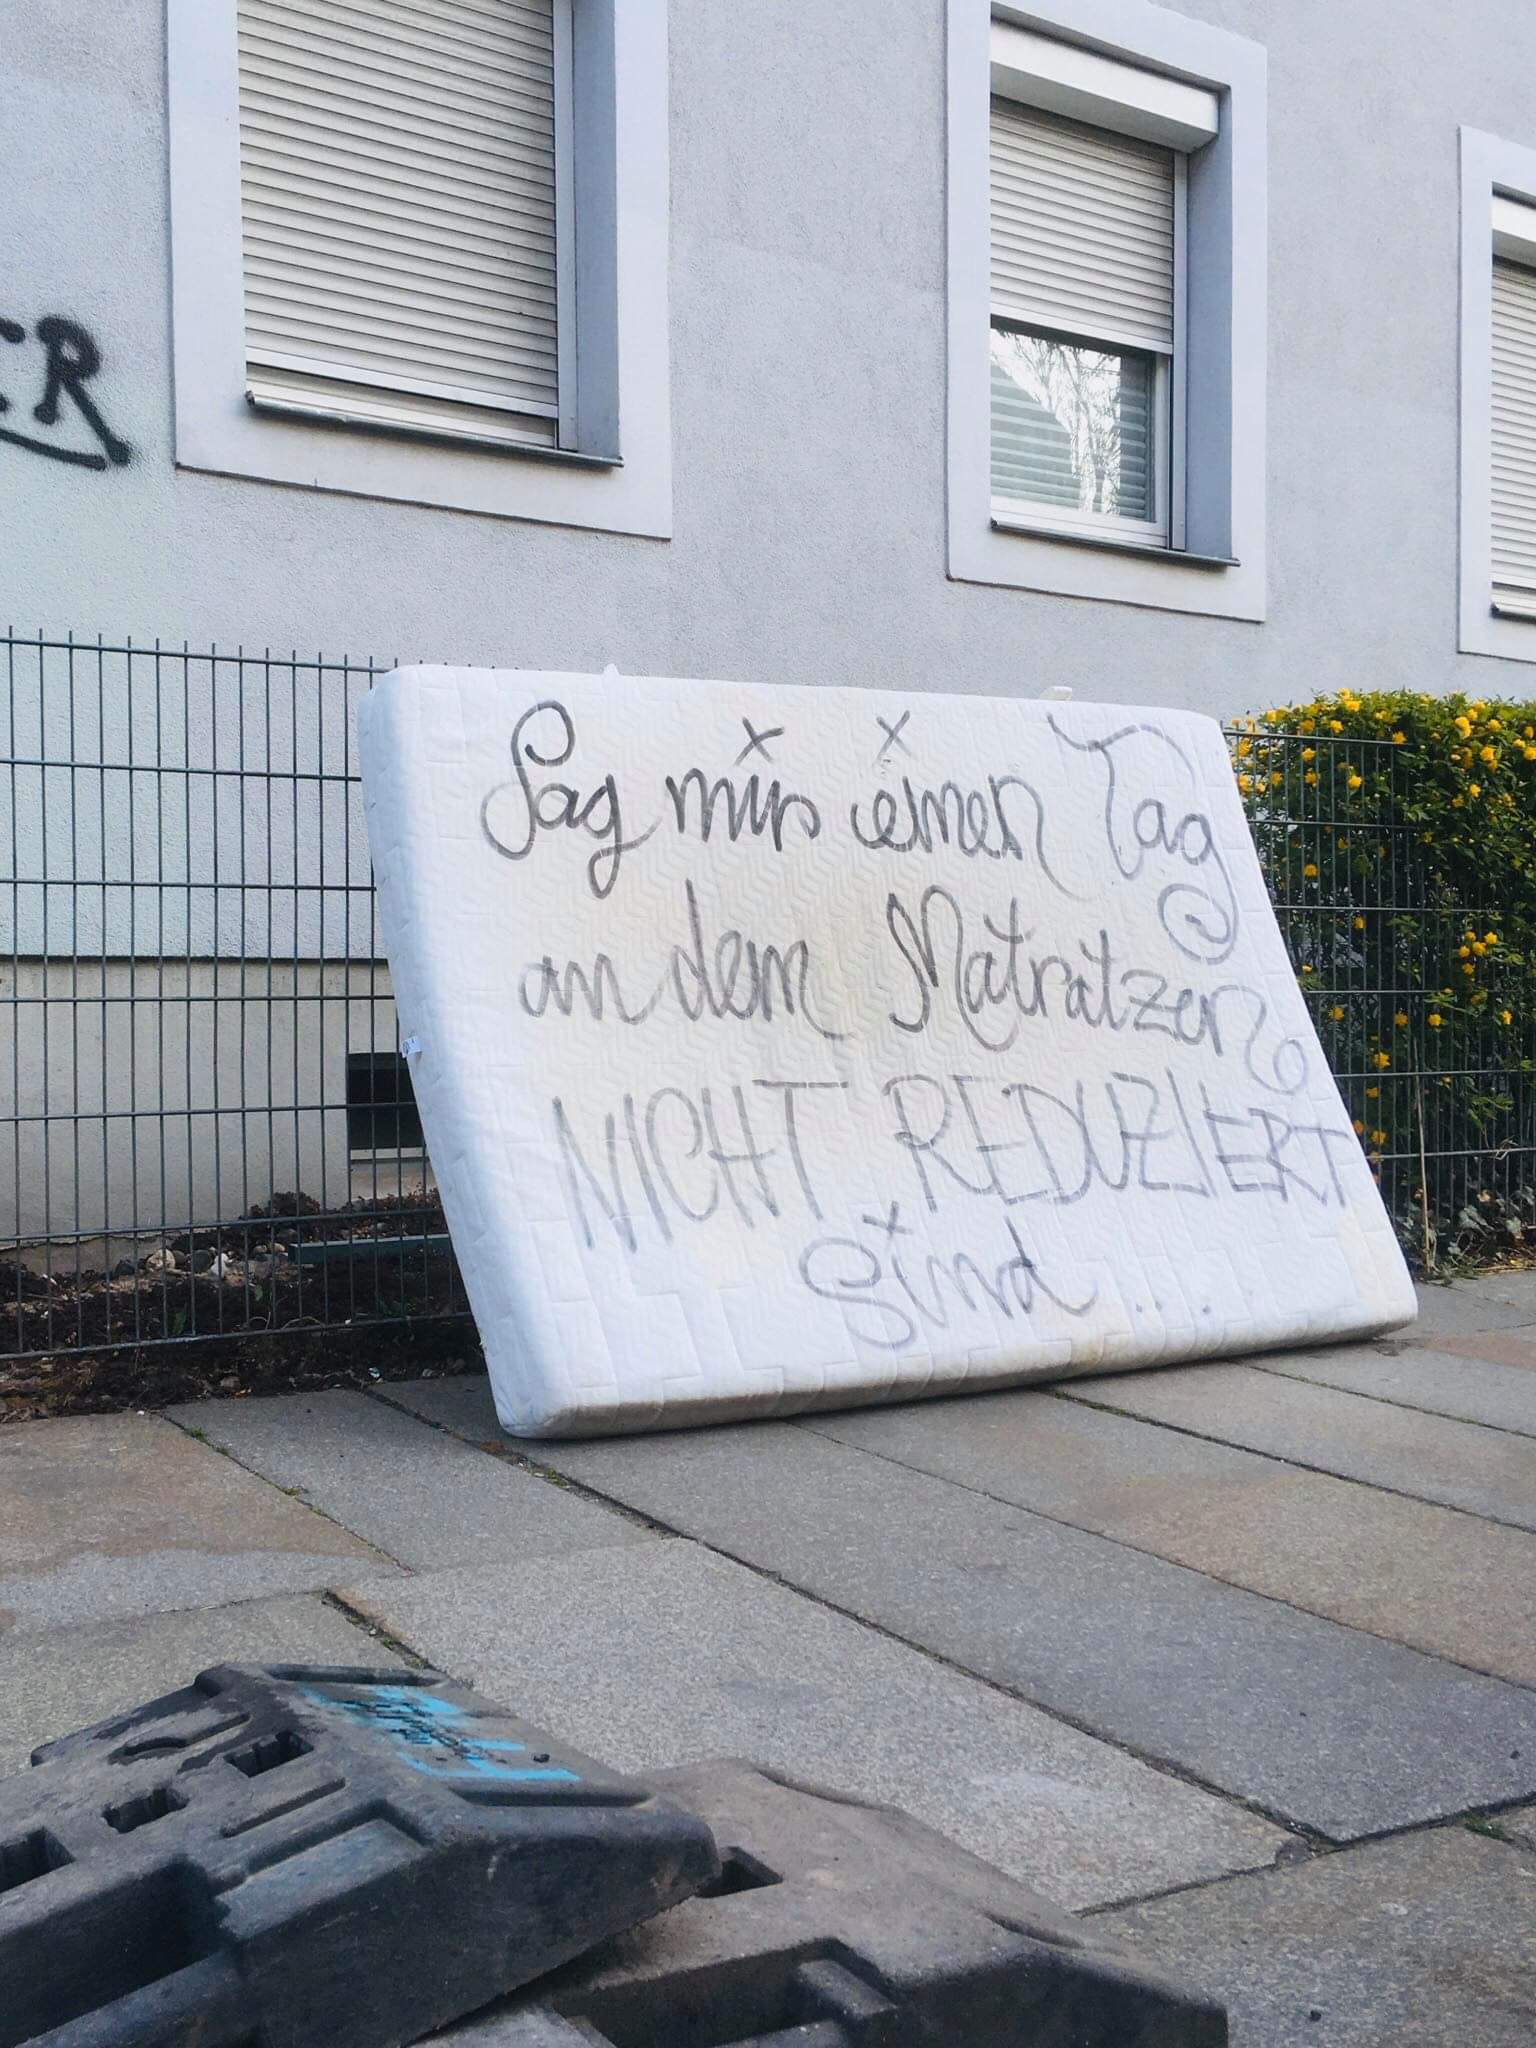 ER
Sag mir einen Tag
an dem Matratzen
NICHT REDUZIERT
sind ...